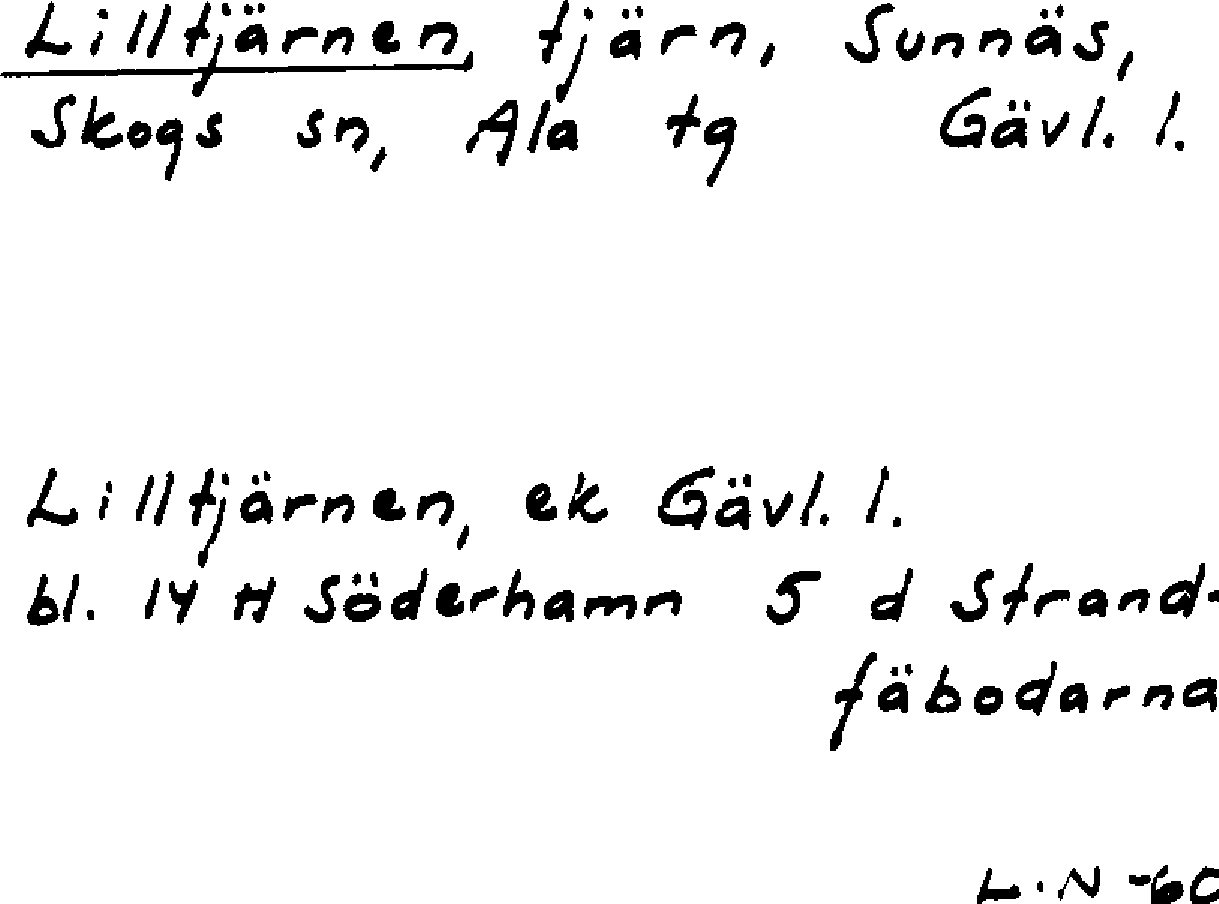 Lilltjärnen, tjärn, Sunnäs,
Skogs sn, Ala tg Gävl. l.
Lilltjärnen, ek Gävl. l.
bl. 14 H Söderhamn 5 d Strand-
fäbodarna
L.N -60